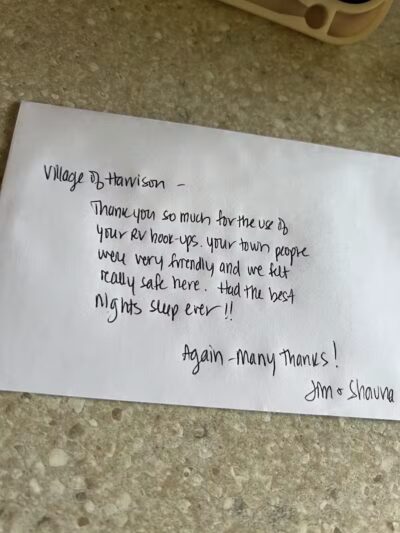 Village of Harrison -
Thank you so much for the use of
your RV hook-ups. your town people
were very friendly and we felt
really safe here. Had the best
nights sleep ever!!
Again - Many thanks!
Jim & Shauna